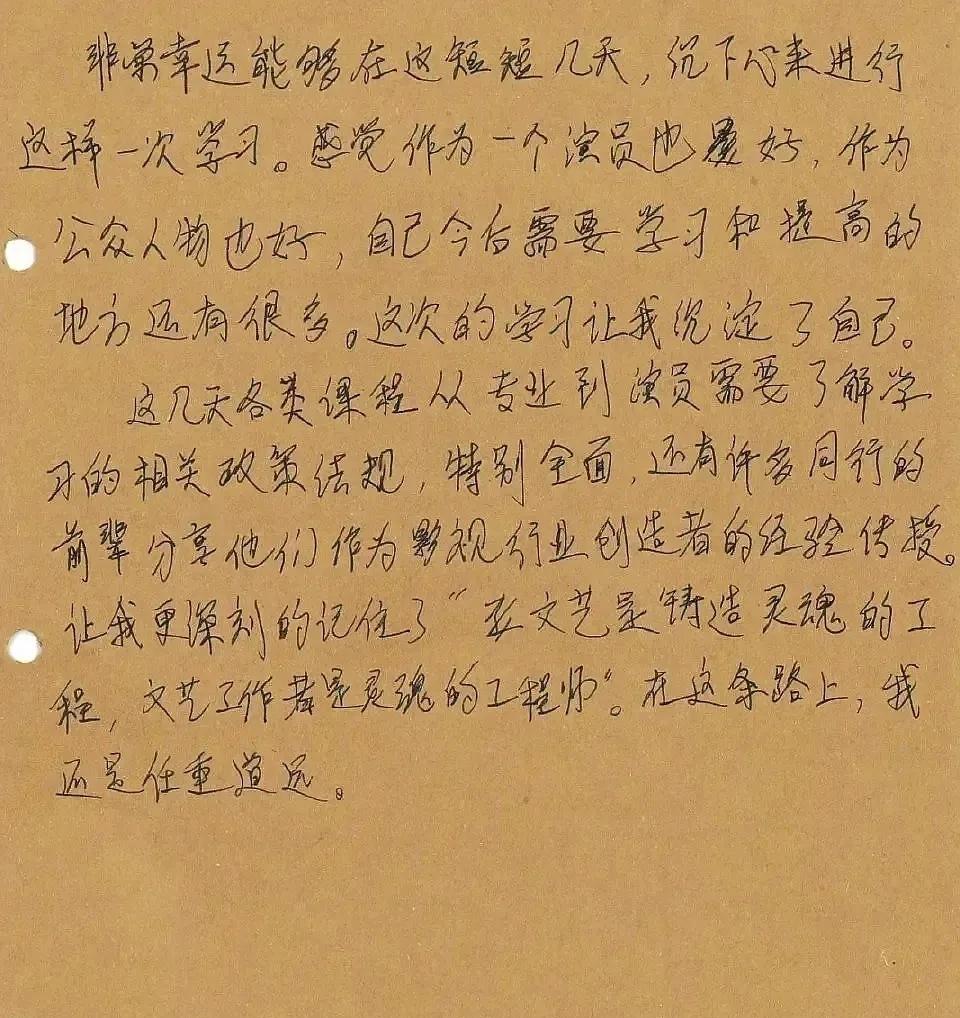 非常幸运能够在这短短几天，沉下心来进行
这样一次学习。感觉作为一个演员也好，作为
公众人物也好，自己今后需要学习和提高的
地方还有很多。这次的学习让我沉淀了自己。
这几天各类课程从专业到演员需要了解学
习的相关政策法规，特别全面，还有许多同行的
前辈分享他们作为影视行业创造者的经验传授。
让我更深刻的记住了“文艺是铸造灵魂的工
程，文艺工作者是灵魂的工程师”。在这条路上，我
还是任重道远。